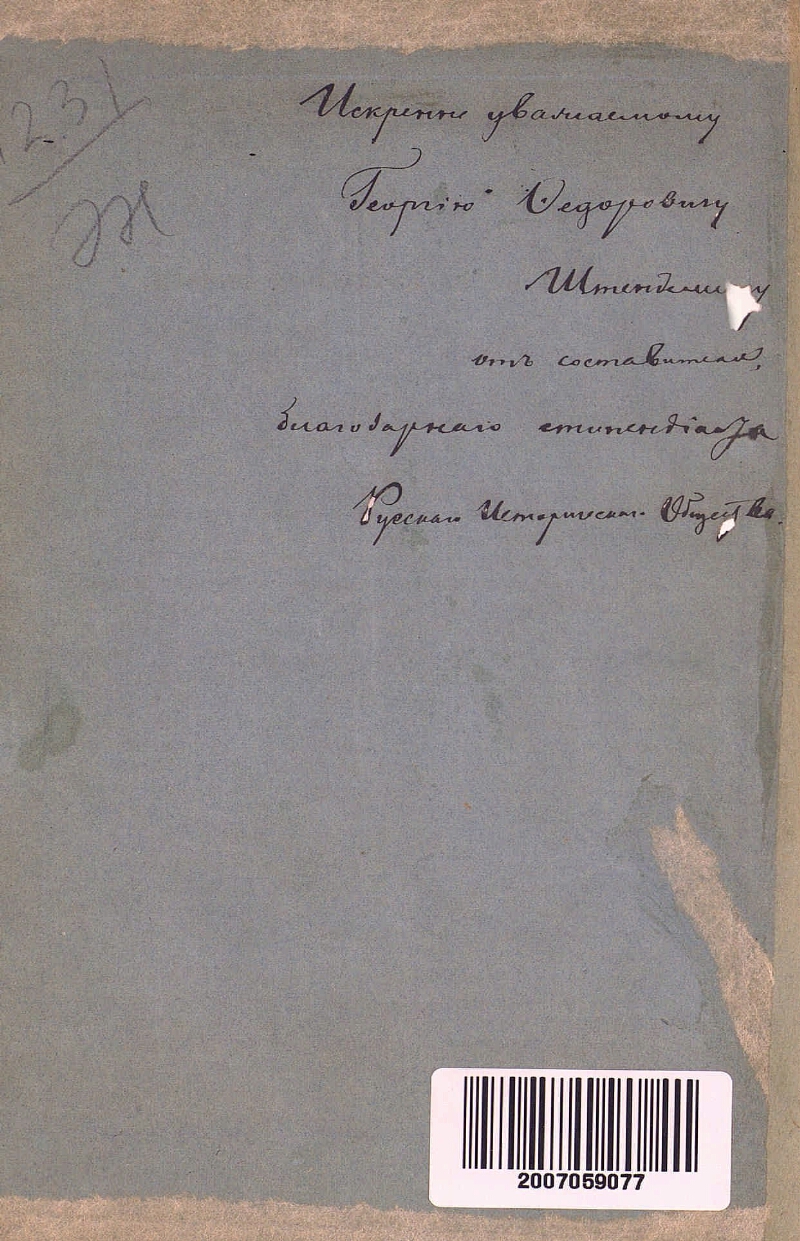 231
Искренне уважаемому
Георгію Ѳедоровичу
Штендману
отъ составителя,
благодарнаго стипендіата
Русскаго Историческаго Общества.
2007059077